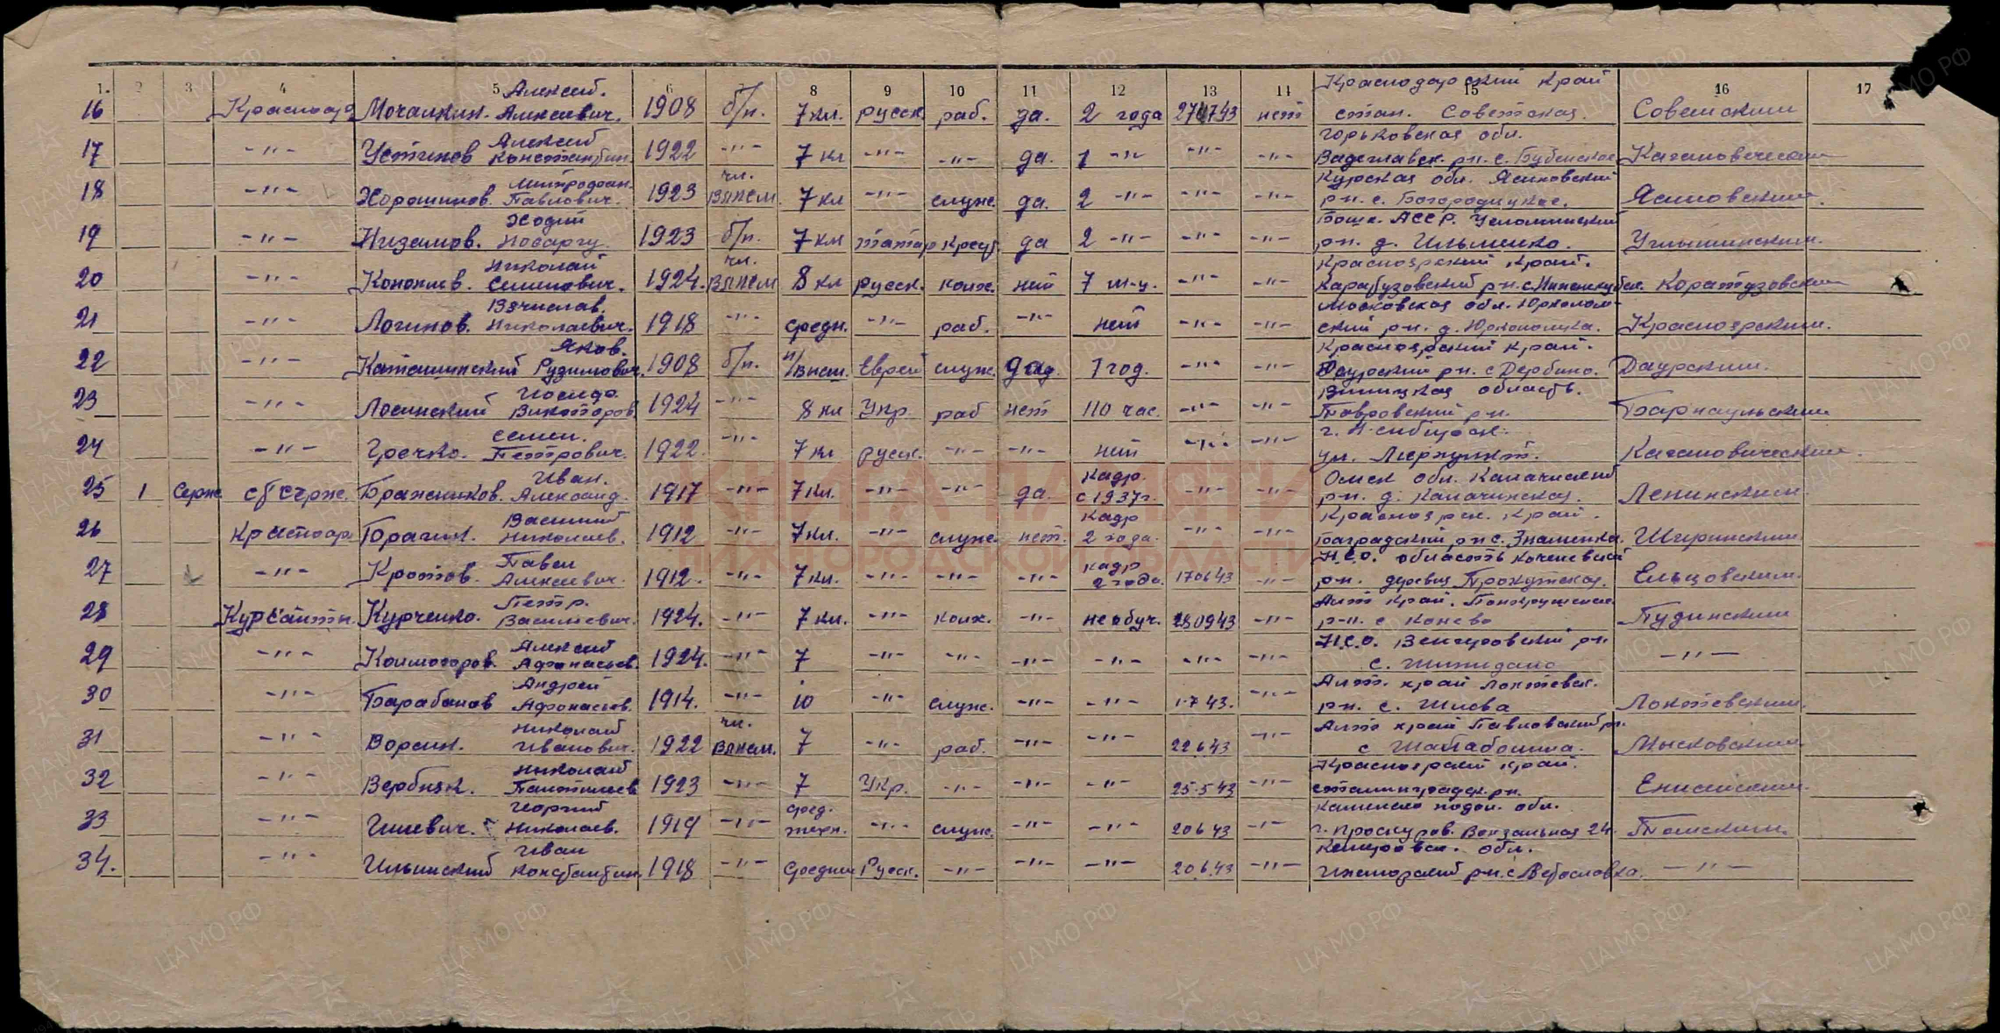 1. 2 3 4 5 6 8 9 10 11 12 13 14 15 16 17
16 Красноар Мочалкин Алексей Алексеевич. 1908 б/п. 7 кл. русск. раб. да. 2 года 27.7.43 нет Краснодарский край стан. Советская. Советским
17 -"- Устинов Алексей Константин. 1922 -"- 7 кл -"- -"- да. 1 -"- -"- -"- Горьковская обл. рн. с. Каганович
18 -"- Хорошилов. Митрофан. Павлович. 1923 чл. ВЛКСМ 7 кл -"- служ. да. 2 -"- -"- -"- Курская обл. Ясиновский рн. с. Богородицкое. Ясиновским.
19 -"- Низамов. 1923 б/п. 7 кл татар крест. да 2 -"- -"- -"- Башк. АССР. рн. д. Ильмино.
20 -"- Николай Семенович. 1924. чл. ВЛКСМ 8 кл русск. колх. нет 7 м-ц. -"- -"- Красноярский край. Каратузовский рн. Каратузовским
21 -"- Логинов. Вячислав. Николаевич. 1918 -"- средн. -"- раб. -"- нет -"- -"- Московская обл. рн. д. Красноярским.
22 -"- Яков. 1908 б/п. н/высш. Еврей служ. да. 1 год. -"- -"- Красноярский край. Даурский рн. с Дербино. Даурским.
23 -"- Лосинский Иосиф. Викторов. 1924 -"- 8 кл Укр. раб нет 110 час. -"- -"- область. рн. Барнаульским
24 -"- Гречко. Семен. Петрович. 1922. -"- 7 кл русск. -"- -"- нет -"- -"- г. Н-сибирск. ул. Кагановическим.
25 1 Серж ст серж. Бражников. Иван. Александ. 1917 -"- 7 кл. -"- -"- да. кадр. с 1937г. -"- -"- Омск обл. Калачинский рн. д. Калачинская. Ленинским.
26 Красноар Брагин. Василий Николаев. 1912 -"- 7 кл. -"- служ. нет. кадр 2 года. -"- -"- Красноярск. край. рн с. Знаменка.
27 -"- Кротов. Павел Алексеевич. 1912. -"- 7 кл. -"- -"- -"- кадр 2 года. 17.06.43 -"- Н.С.О. область Коченевский рн. деревня Ельцовским.
28 Курсантт Курченко. Петр. Васильевич. 1924. -"- 7 кл. -"- колх. -"- не обуч. 28.09.43 -"- Алт край. рн. с Конево Пудинским
29 -"- Колмогоров. Алексей Афонасьев. 1924. -"- 7 -"- -"- -"- -"- -"- -"- Н.С.О. Венгеровский рн с. -"-
30 -"- Барабанов Андрей Афонасьев. 1914. -"- 10 -"- служ. -"- -"- 1.7.43. -"- Алт. край Локтевск. рн. с. Локтевским.
31 -"- Ворсин. Николай Иванович. 1922 чл. ВЛКСМ. 7 -"- раб. -"- -"- 22.6.43 -"- Алт край Павловский рн. с Шатаболиха. Мысковским
32 -"- Вербицк. Николай 1923 -"- 7 Укр. -"- -"- -"- 25.5.43 -"- Красноярский край. сталинградск. рн. Енисейским.
33 -"- Гилевич. Георгий Николаев. 1919 -"- сред. техн. -"- служ. -"- -"- 20.6.43 -"- каменец подол. обл. г. Проскуров. Вокзальная 24. Томским.
34. -"- Ильинский Иван Константин. 1918 -"- средние Русск. -"- -"- -"- 20.6.43 -"- Кемеровск. обл. Ижморский рн. с -"-
КНИГА ПАМЯТИ
НИЖЕГОРОДСКОЙ ОБЛАСТИ
ЦА МО РФ